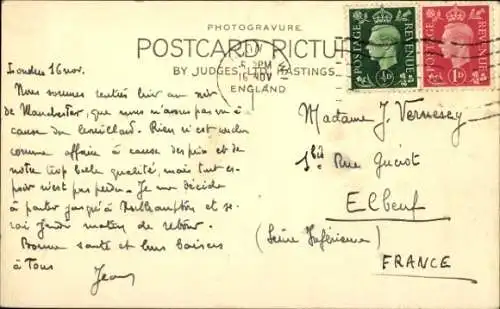 PHOTOGRAVURE
POSTCARD PICTURE
BY JUDGES LTD HASTINGS
ENGLAND
POSTAGE REVENUE
½D
POSTAGE REVENUE
1D
PM
16 NOV
Londres 16 nov.
Nous sommes rentrés hier au soir
de Manchester, que nous n'avons pas vu à
cause du brouillard. Rien n'est
comme affaire à cause des prix et de
notre trop belle qualité, mais tout es-
poir n'est pas perdu. Je me décide
à partir jusqu'à et se-
rai Jeudi matin de retour.
Bonne santé et bons baisers
à Tous
Jean
Madame J.
Rue Guérot
Elbeuf
(Seine Inférieure)
FRANCE